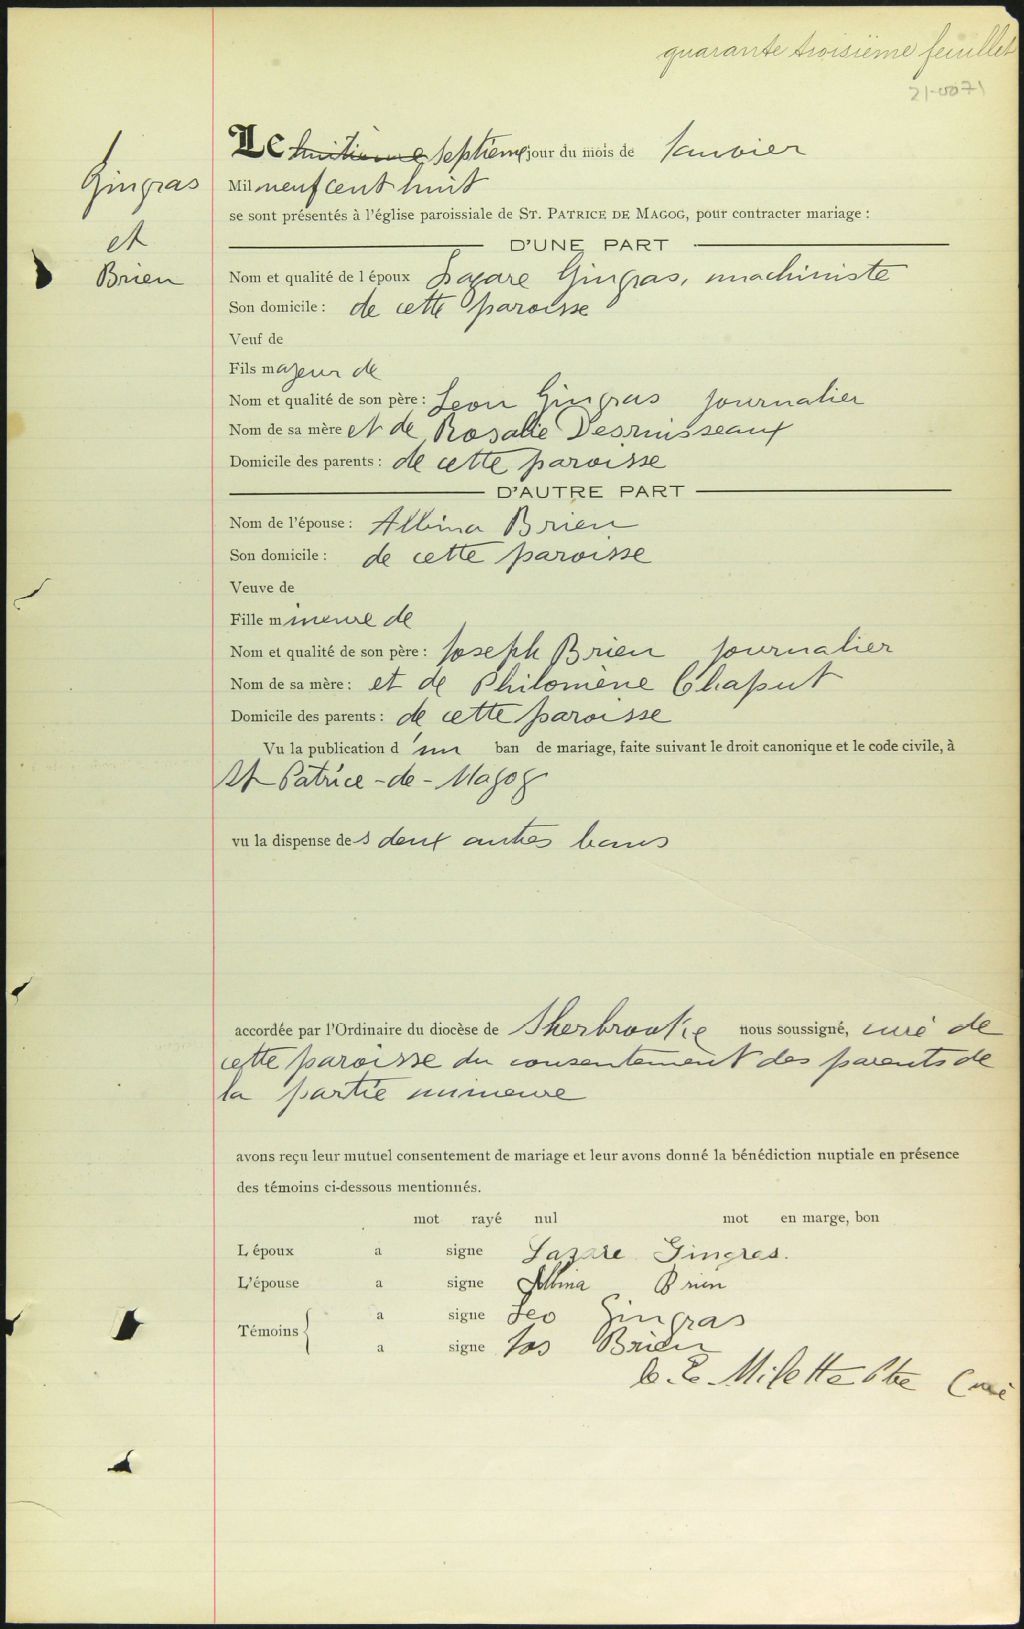 quarante troisième feuillet
21-0071
Gingras
et
Brien
Le huitième septième jour du mois de Janvier
Mil neuf cent huit
se sont présentés à l'église paroissiale de ST. PATRICE DE MAGOG, pour contracter mariage :
D'UNE PART
Nom et qualité de l époux Lazare Gingras, machiniste
Son domicile : de cette paroisse
Veuf de
Fils majeur de
Nom et qualité de son père : Leon Gingras journalier
Nom de sa mère et de Rosalie Desruisseaux
Domicile des parents : de cette paroisse
D'AUTRE PART
Nom de l'épouse : Albina Brien
Son domicile : de cette paroisse
Veuve de
Fille mineure de
Nom et qualité de son père : Joseph Brien journalier
Nom de sa mère : et de Philomène Chaput
Domicile des parents : de cette paroisse
Vu la publication d 'un ban de mariage, faite suivant le droit canonique et le code civile, à
St Patrice-de-Magog
vu la dispense des deux autres bans
accordée par l'Ordinaire du diocèse de Sherbrooke nous soussigné, curé de
cette paroisse du consentement des parents de
la partie mineure
avons reçu leur mutuel consentement de mariage et leur avons donné la bénédiction nuptiale en présence
des témoins ci-dessous mentionnés.
mot rayé nul mot en marge, bon
L époux a signe Lazare Gingras.
L'épouse a signe Albina Brien
Témoins { a signe Leo Gingras
a signe Jos Brien
C. E. Milette Ptre Curé